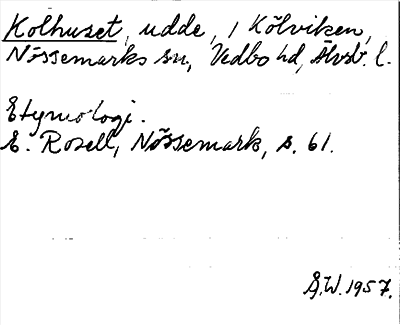 Kolhuset, udde, i Kölviken,
Nössemarks sn, Vedbo hd, Älvsb. l.
Etymologi.
E. Rosell, Nössemark, s. 61.
G.W. 1957.